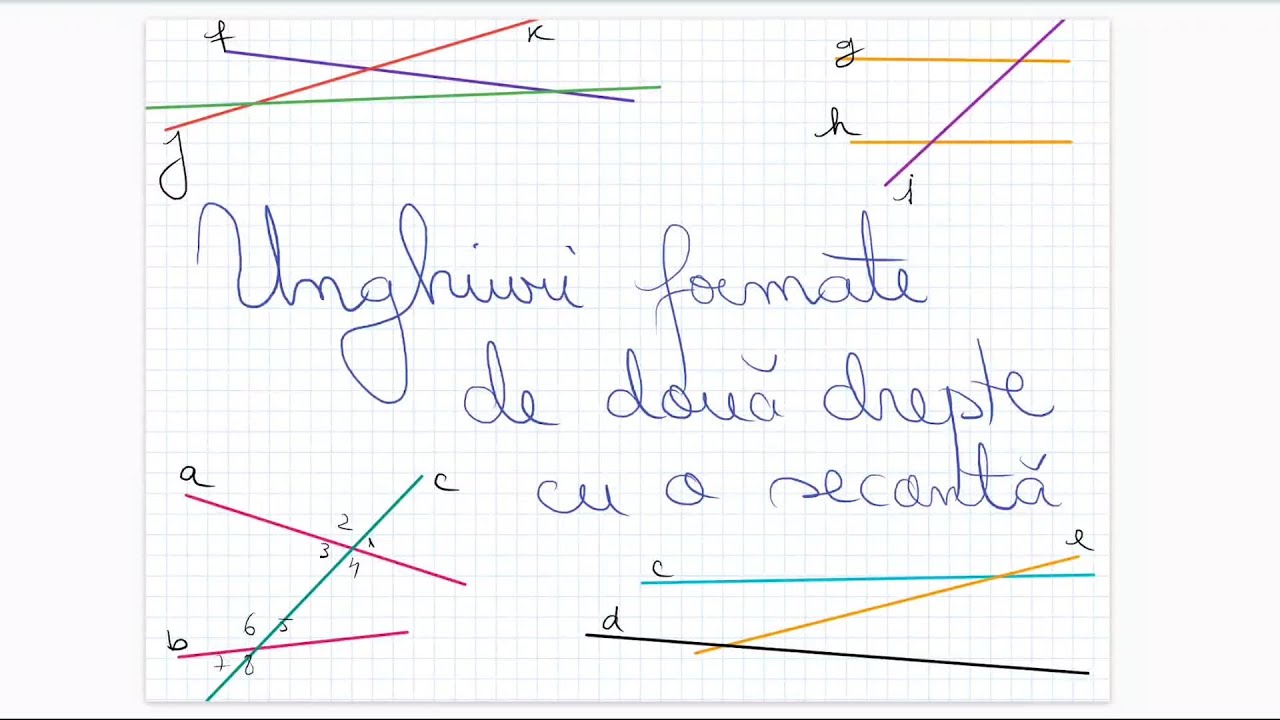 f K
g
h
J
j
Unghiuri formate
de două drepte
cu o secantă
a c
2
3 1
4
6 5
b
7 8
c e
d